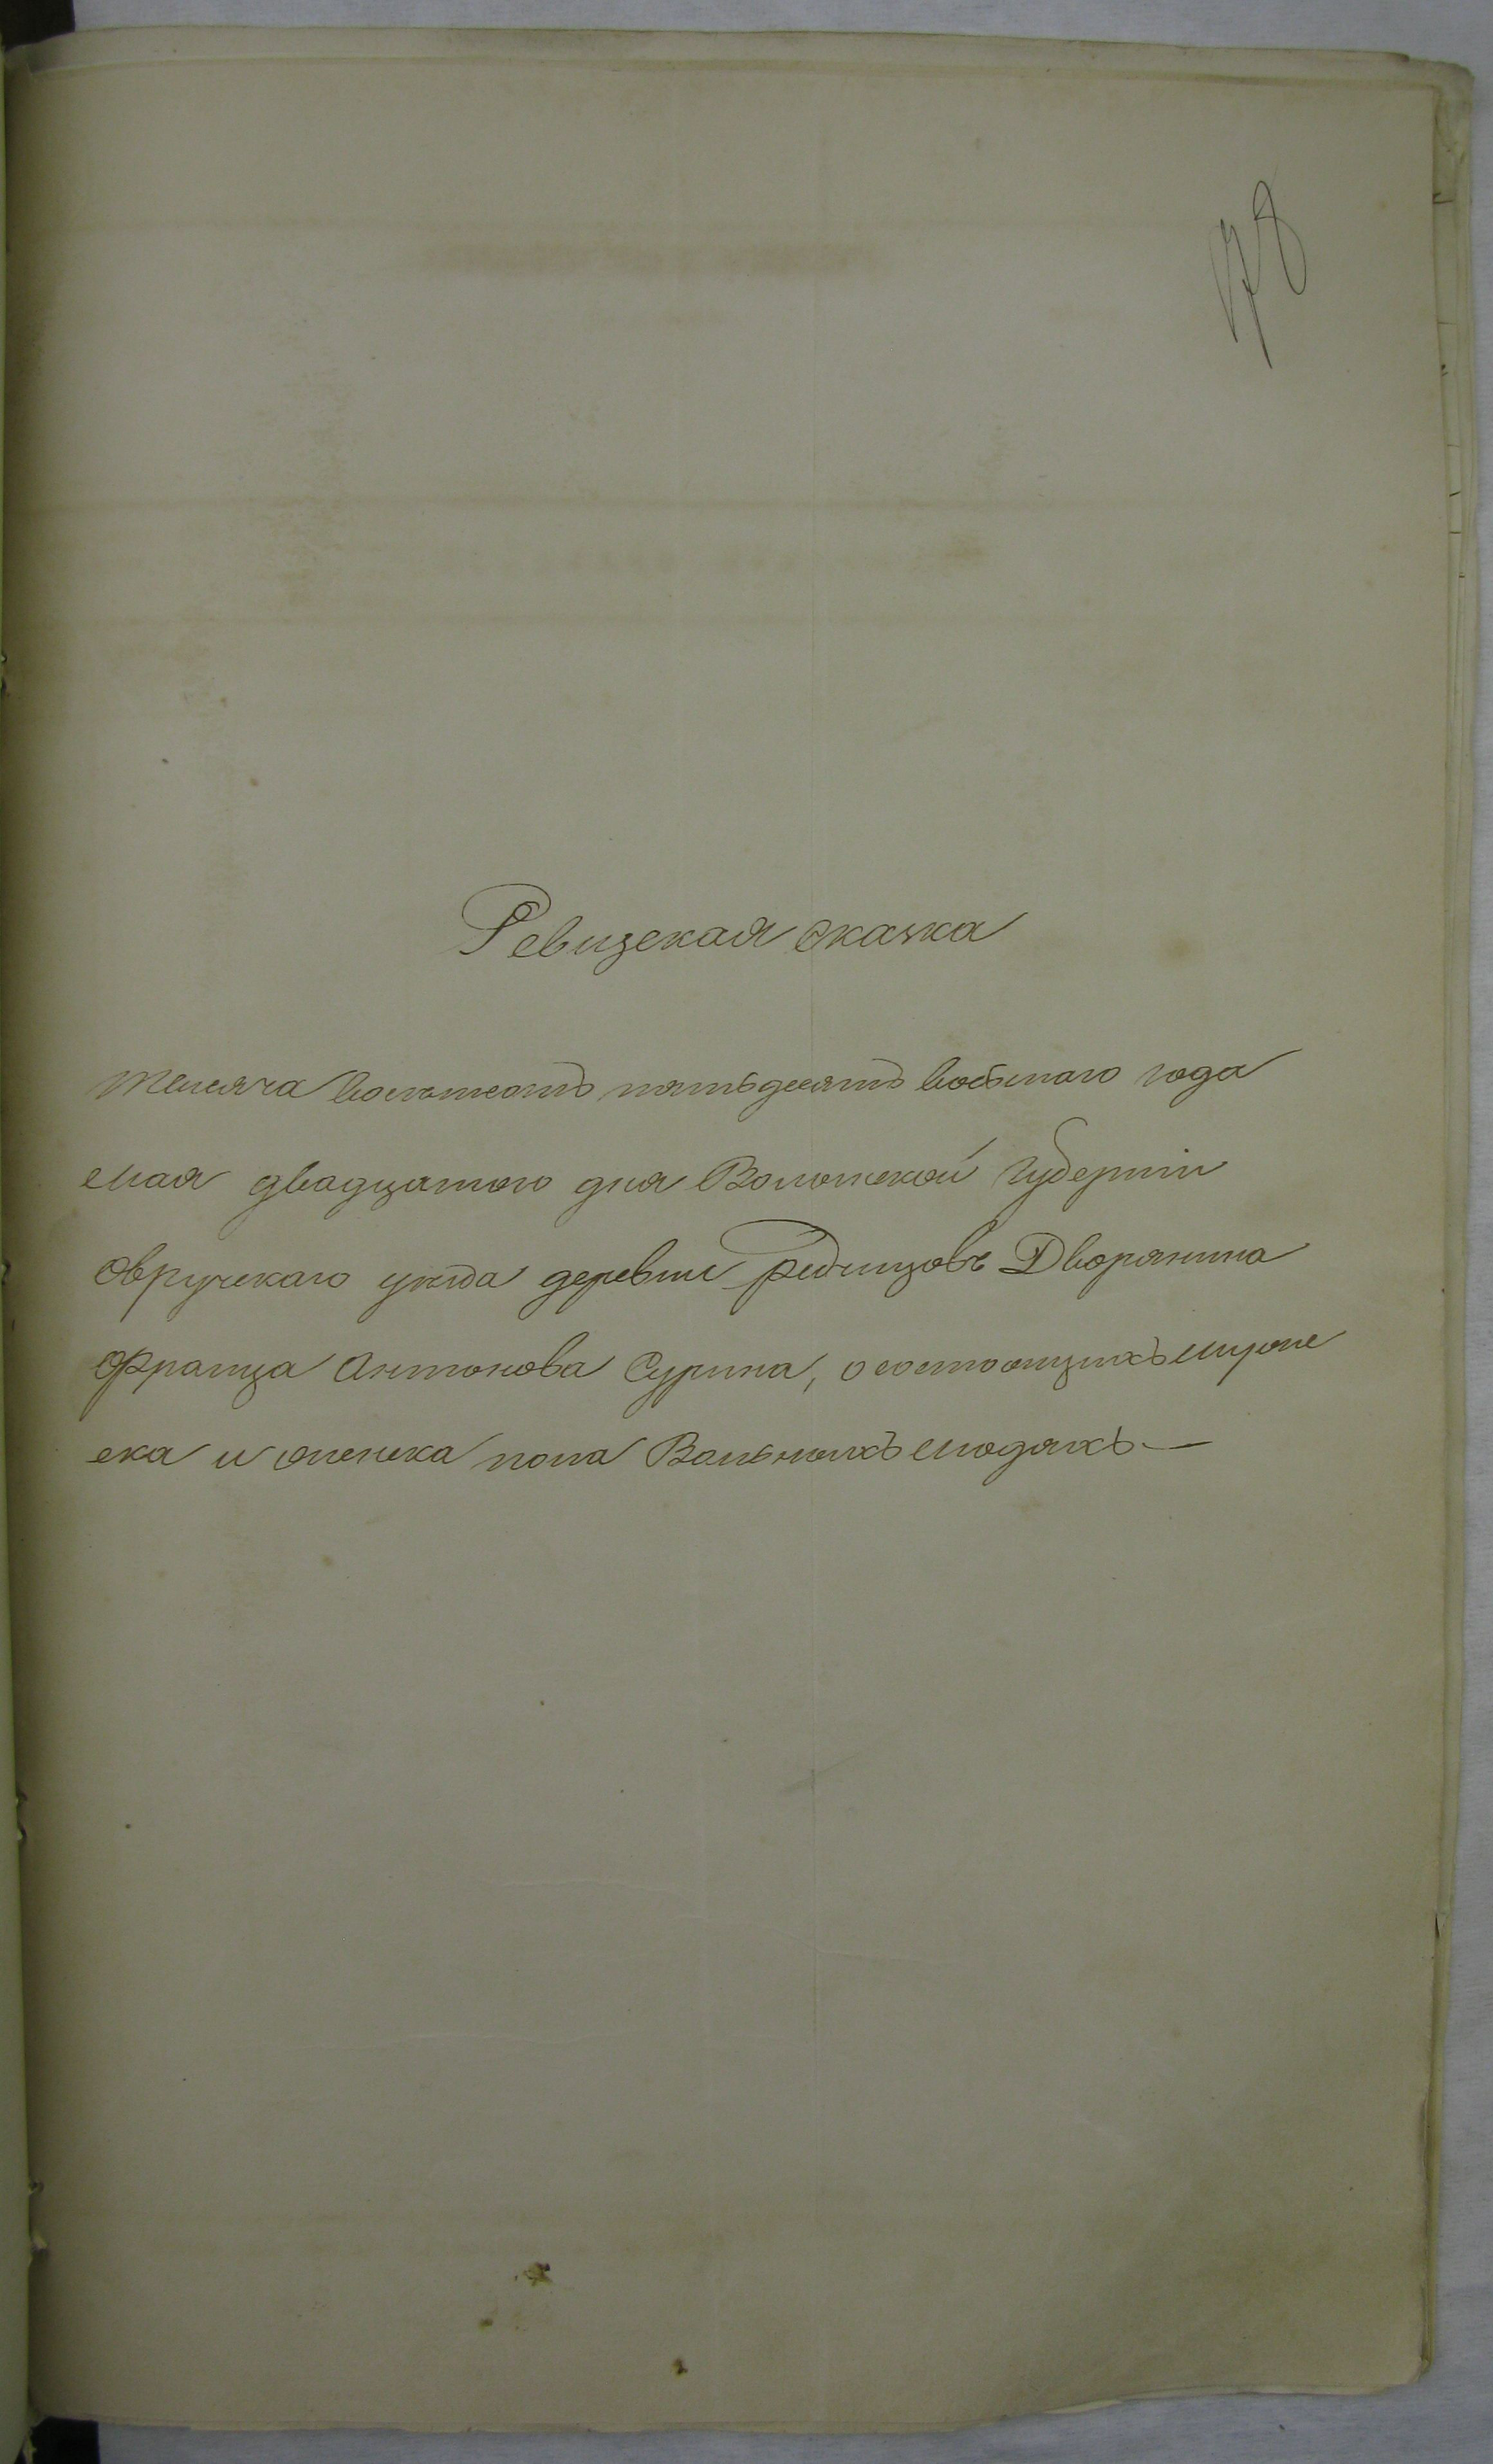 98
Ревизская сказка
Тысяча восемьсотъ пятьдесятъ восьмаго года
мая двадцатого дня Волынской Губерніи
Овручскаго уѣзда деревни Редчицовъ Дворянина
Франца Антонова Сурина, о состоящихъ мужеске
ска и женска пола Вольныхъ людяхъ.—